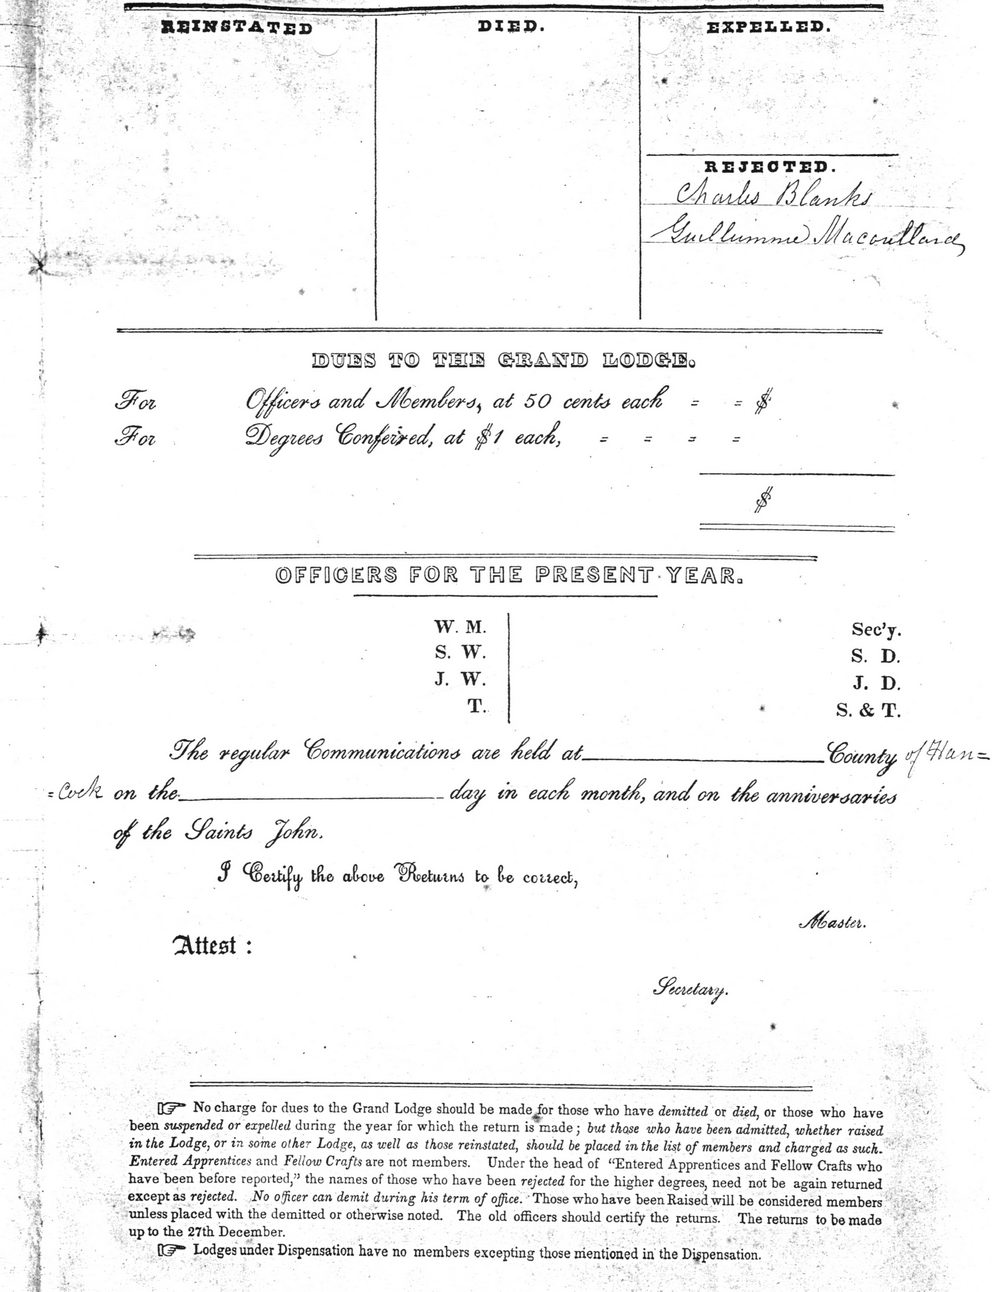 REINSTATED
DIED.
EXPELLED.
REJECTED.
Charles Blanks
Guillumme Macoullard
DUES TO THE GRAND LODGE.
For Officers and Members, at 50 cents each = = $
For Degrees Conferred, at $1 each, = = = =
$
OFFICERS FOR THE PRESENT YEAR.
W. M. Sec'y.
S. W. S. D.
J. W. J. D.
T. S. & T.
The regular Communications are held at County of Han=
=Cock on the day in each month, and on the anniversaries
of the Saints John.
I Certify the above Returns to be correct,
Master.
Attest :
Secretary.
☞ No charge for dues to the Grand Lodge should be made for those who have demitted or died, or those who have
been suspended or expelled during the year for which the return is made ; but those who have been admitted, whether raised
in the Lodge, or in some other Lodge, as well as those reinstated, should be placed in the list of members and charged as such.
Entered Apprentices and Fellow Crafts are not members. Under the head of "Entered Apprentices and Fellow Crafts who
have been before reported," the names of those who have been rejected for the higher degrees, need not be again returned
except as rejected. No officer can demit during his term of office. Those who have been Raised will be considered members
unless placed with the demitted or otherwise noted. The old officers should certify the returns. The returns to be made
up to the 27th December.
☞ Lodges under Dispensation have no members excepting those mentioned in the Dispensation.